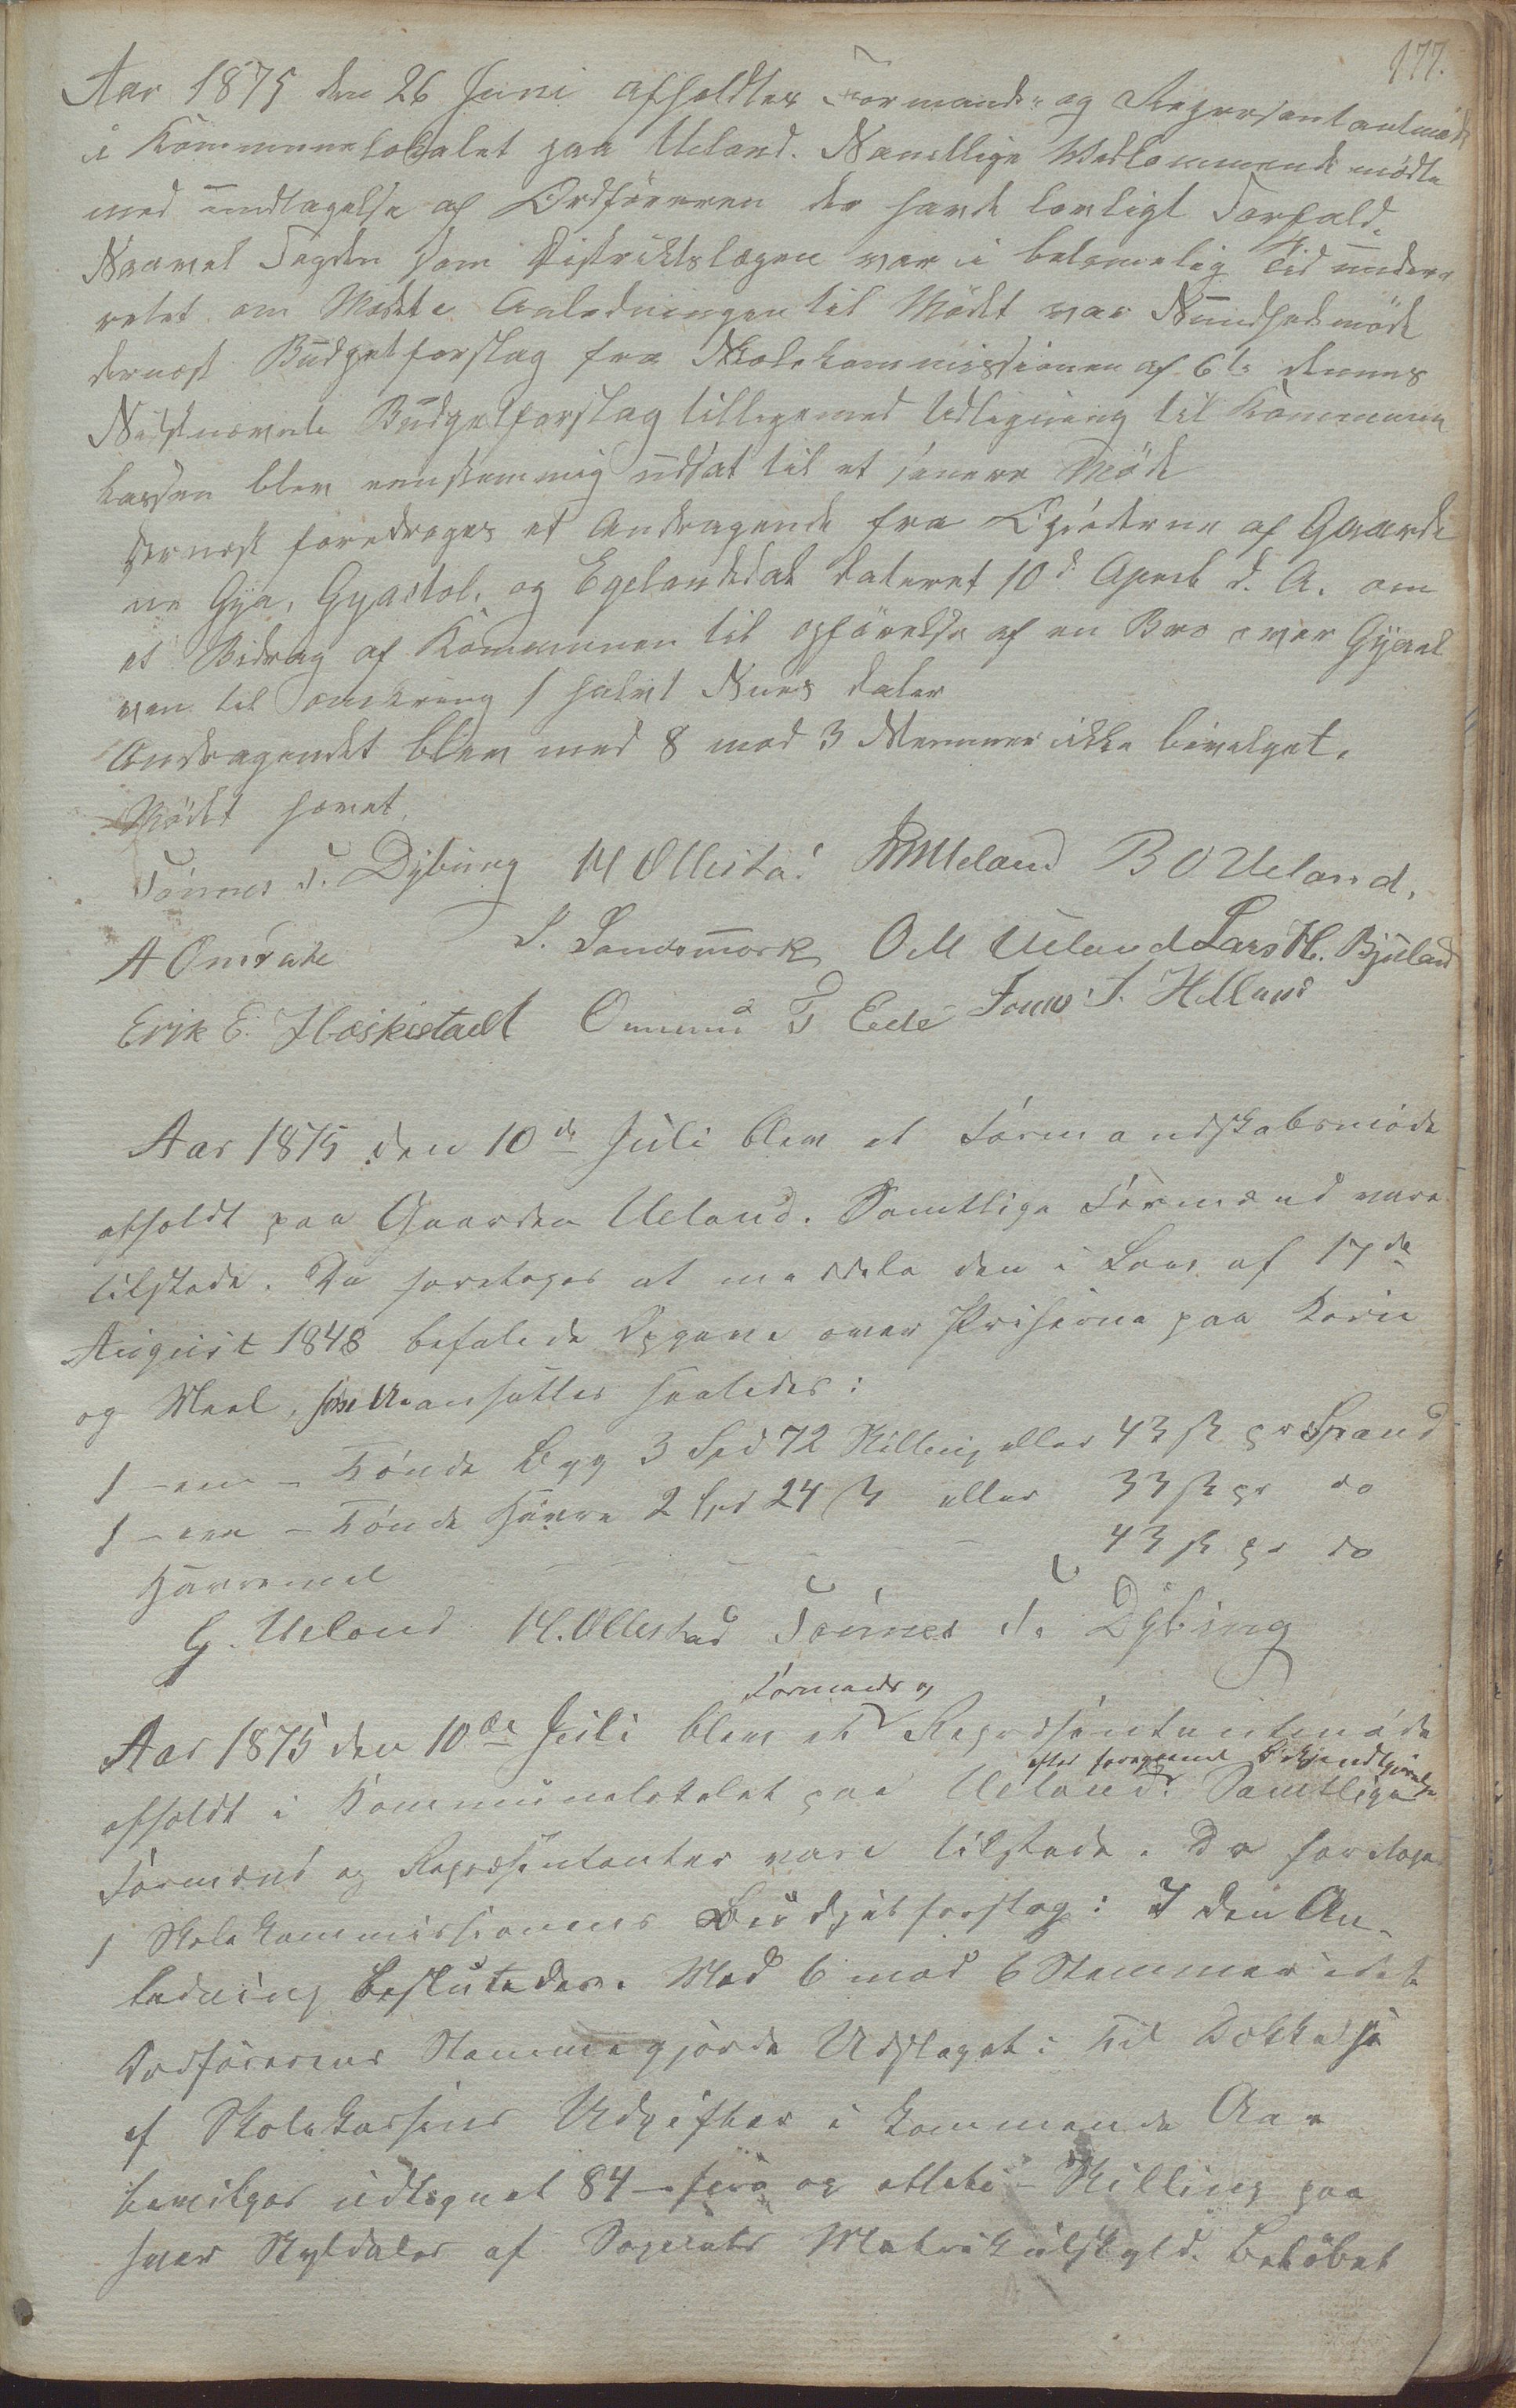 177.
Aar 1875 den 26 Juni afholdtes Formands- og Representantmøde
i Kommunelokalet paa Ueland. Samtlige Vedkommende mødte
med undtagelse af Ordføreren der havde lovligt Forfald.
Saavel Fogden som Distriktslægen var i betimelig Tid under-
rettet om Mødet. Anledningen til Mødet var Sundhedsmøde
dernæst Budgetforslag fra Skolekommissionen af 6te dennes
Sidstnævnte Budgetforslag tilligemed Udligning til Kommune
kassen blev eenstemmig udsat til et senere Møde
Dernæst foredroges et Andragende fra Opsidderne af Gaarde
ne Gya, Gyastøl, og Egelandsdal dateret 10de April d. A. om
et Bidrag af Kommunen til opførelse af en Bro over Gyael
ven til omkring 1 halvt Hundrede daler
Andragendet blev med 8 mod 3 Stemmer ikke bevilget.
Mødet hævet.
Tønnes T. Dybing M Ollesta! Ueland B O Ueland,
A Omdal S. Sandsmork O M Ueland Lars H. Bjuland
Erik E. Hæskestadt Ommund T Eede Jonas J. Helland
Aar 1875 den 10de Juli blev et Formandskabsmøde
afholdt paa Gaarden Ueland. Samtlige Formænd vare
tilstede. Da foretoges at meddele den i Lov af 17de
August 1848 befalede Opgave over Priserne paa Korn
og Meel, som ansættes saaledes:
1 - een - Tønde Byg 3 Spd 72 Skilling eller 43 ß pr Spand
1 - een - Tønde Havre 2 Spd 24 ß eller 33 ß pr do
Havremel — — — — 43 ß pr do
G. Ueland M. Ollestad Tønnes T. Dybing
Formands og
Aar 1875 den 10de Juli blev et Repræsentantmøde
efter foregaaende Bekjendtgjørelse
afholdt i Kommunelokalet paa Ueland. Samtlige
Formænd og Repræsentanter vare tilstede. Da foretoges
1 Skolekommissionens Budgetforslag: I den An-
ledning besluttedes. Med 6 mod 6 Stemmer idet
Ordførerens Stemme gjorde Udslaget: Til Dækkelse
af Skolekassens Udgifter i kommende Aar
bevilges udlignet 84 - fire og otteti - Skilling paa
hver Skyldaler af Sognets Matrikulskyld. Beløbet